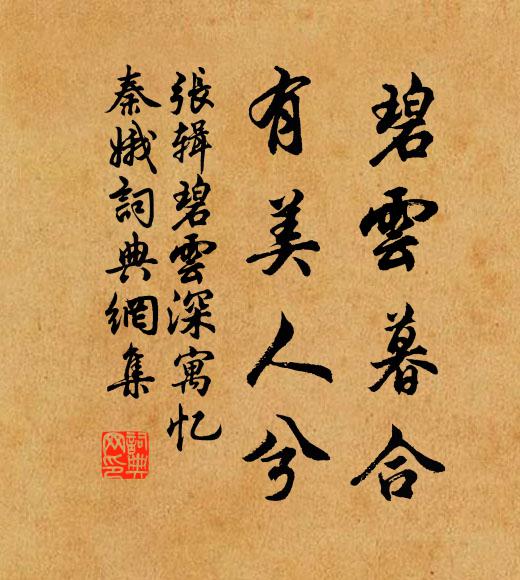 碧雲暮合
有美人兮
張輯碧雲深寓忆
秦娥詞典網集
詞典网印